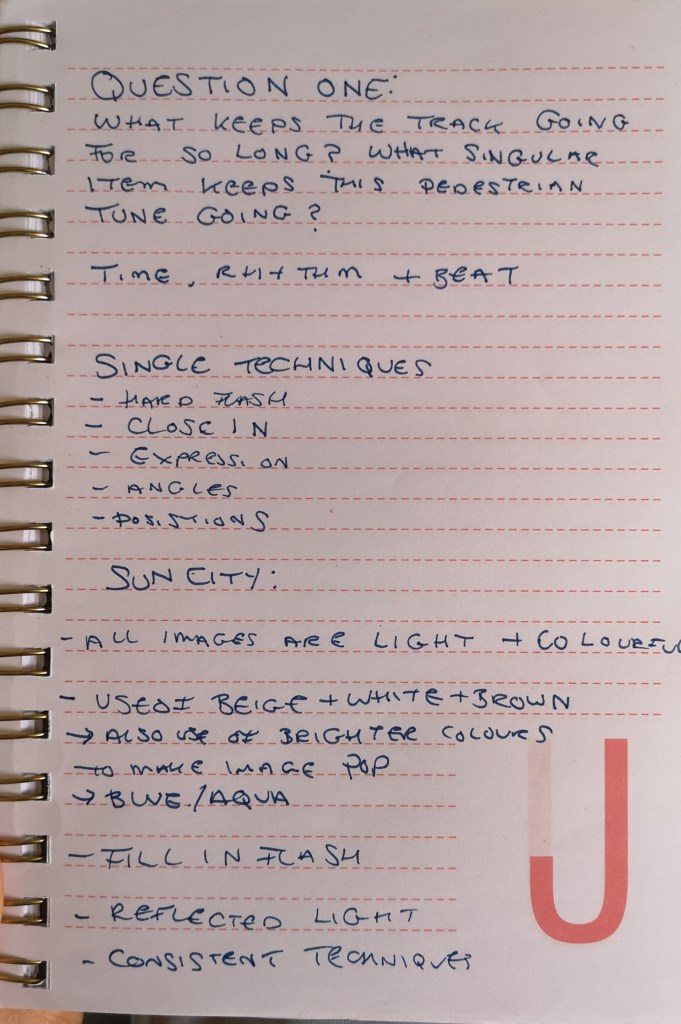 QUESTION ONE:
WHAT KEEPS THE TRACK GOING
FOR SO LONG? WHAT SINGULAR
ITEM KEEPS THIS PEDESTRIAN
TUNE GOING?
TIME, RHYTHM + BEAT
SINGLE TECHNIQUES
- HARD FLASH
- CLOSE IN
- EXPRESSION
- ANGLES
- POSISTIONS
SUN CITY:
- ALL IMAGES ARE LIGHT + COLOURFUL
- USED BEIGE + WHITE + BROWN
→ ALSO USE OF BRIGHTER COLOURS
TO MAKE IMAGE POP
→ BLUE/AQUA
- FILL IN FLASH
- REFLECTED LIGHT
- CONSISTENT TECHNIQUES
U